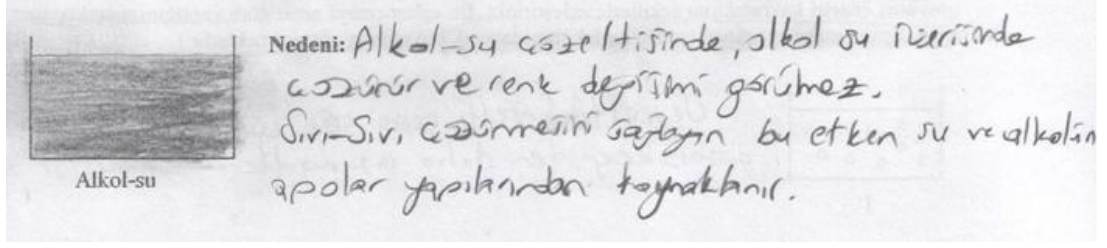 Nedeni: Alkol-su çözeltisinde, alkol su içerisinde
çözünür ve renk değişimi görülmez.
Sıvı-Sıvı çözünmesini sağlayan bu etken su ve alkolün
apolar yapılarından kaynaklanır.
Alkol-su